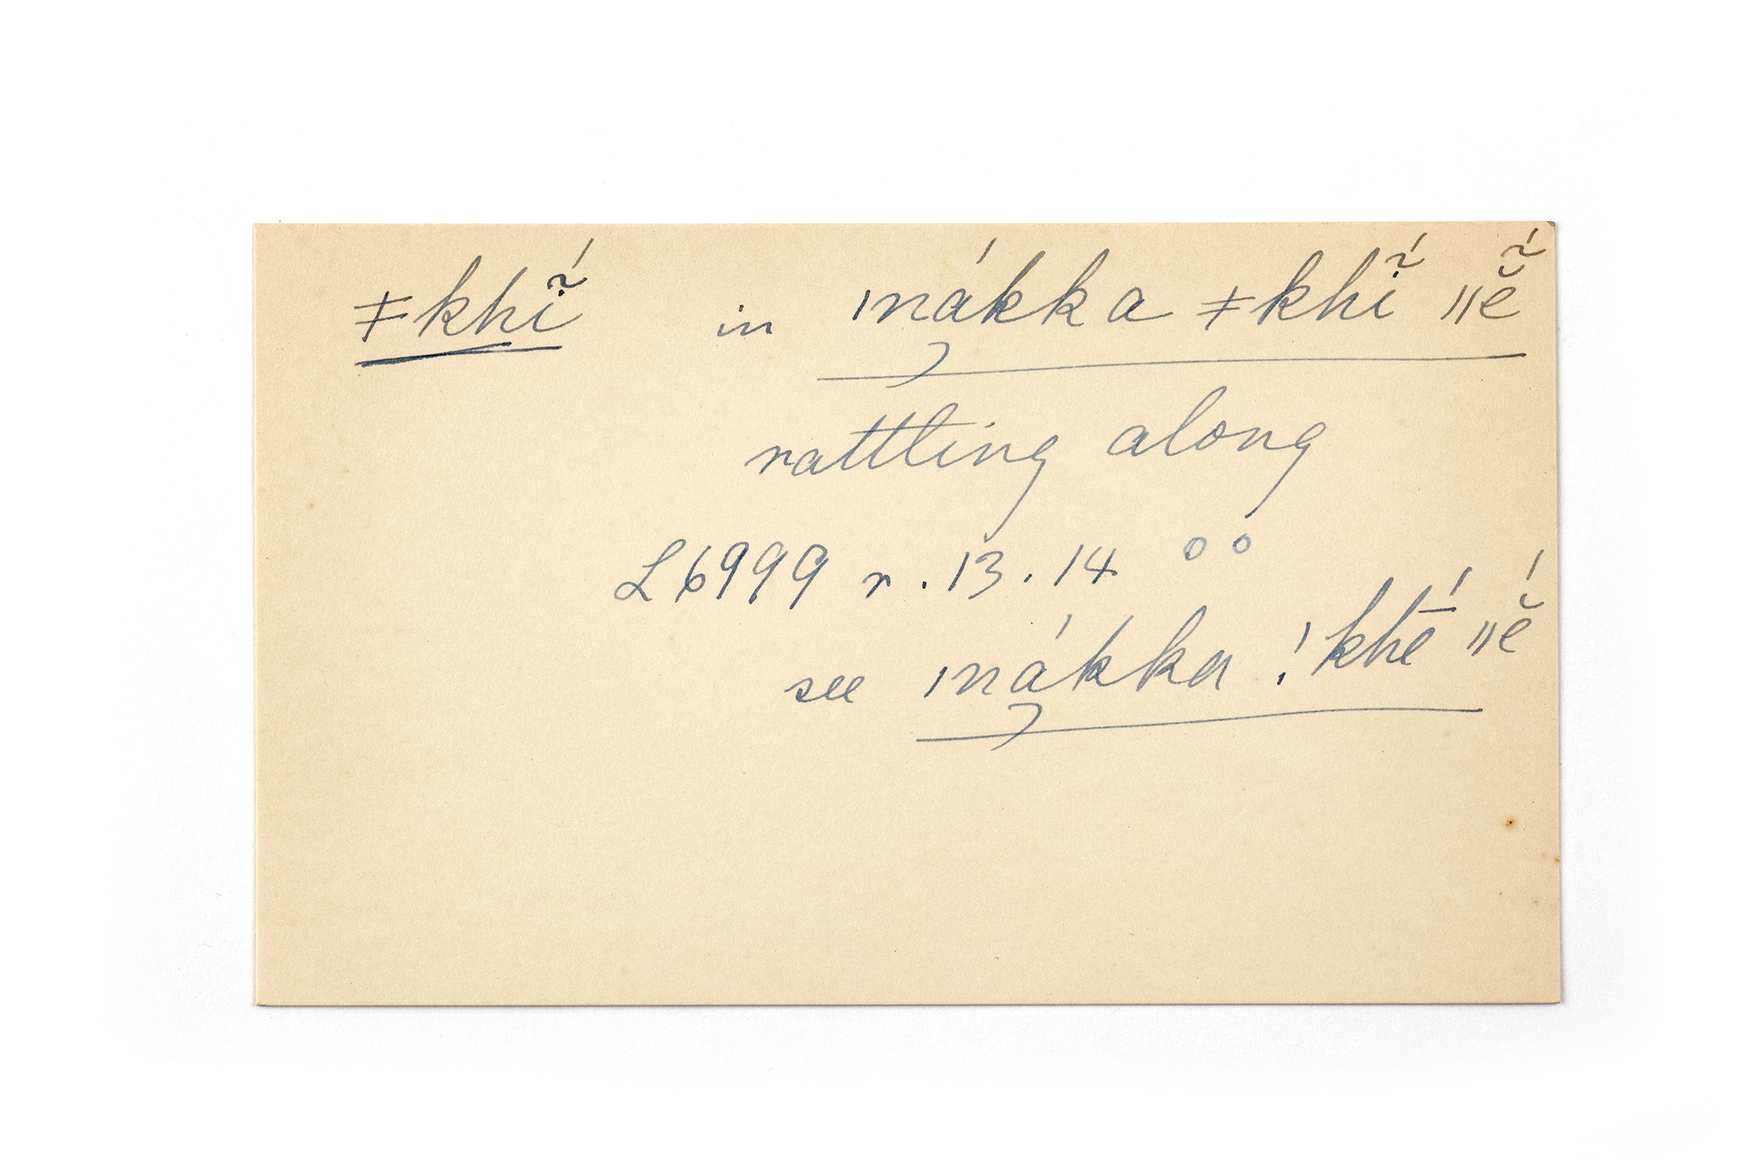 ǂkhĩ́ in ǀnákka ǂkhĩ́ ǁĕ̃́
rattling along
L 6999 r. 13. 14 o o
see ǀnákka !khḗ ǁĕ́